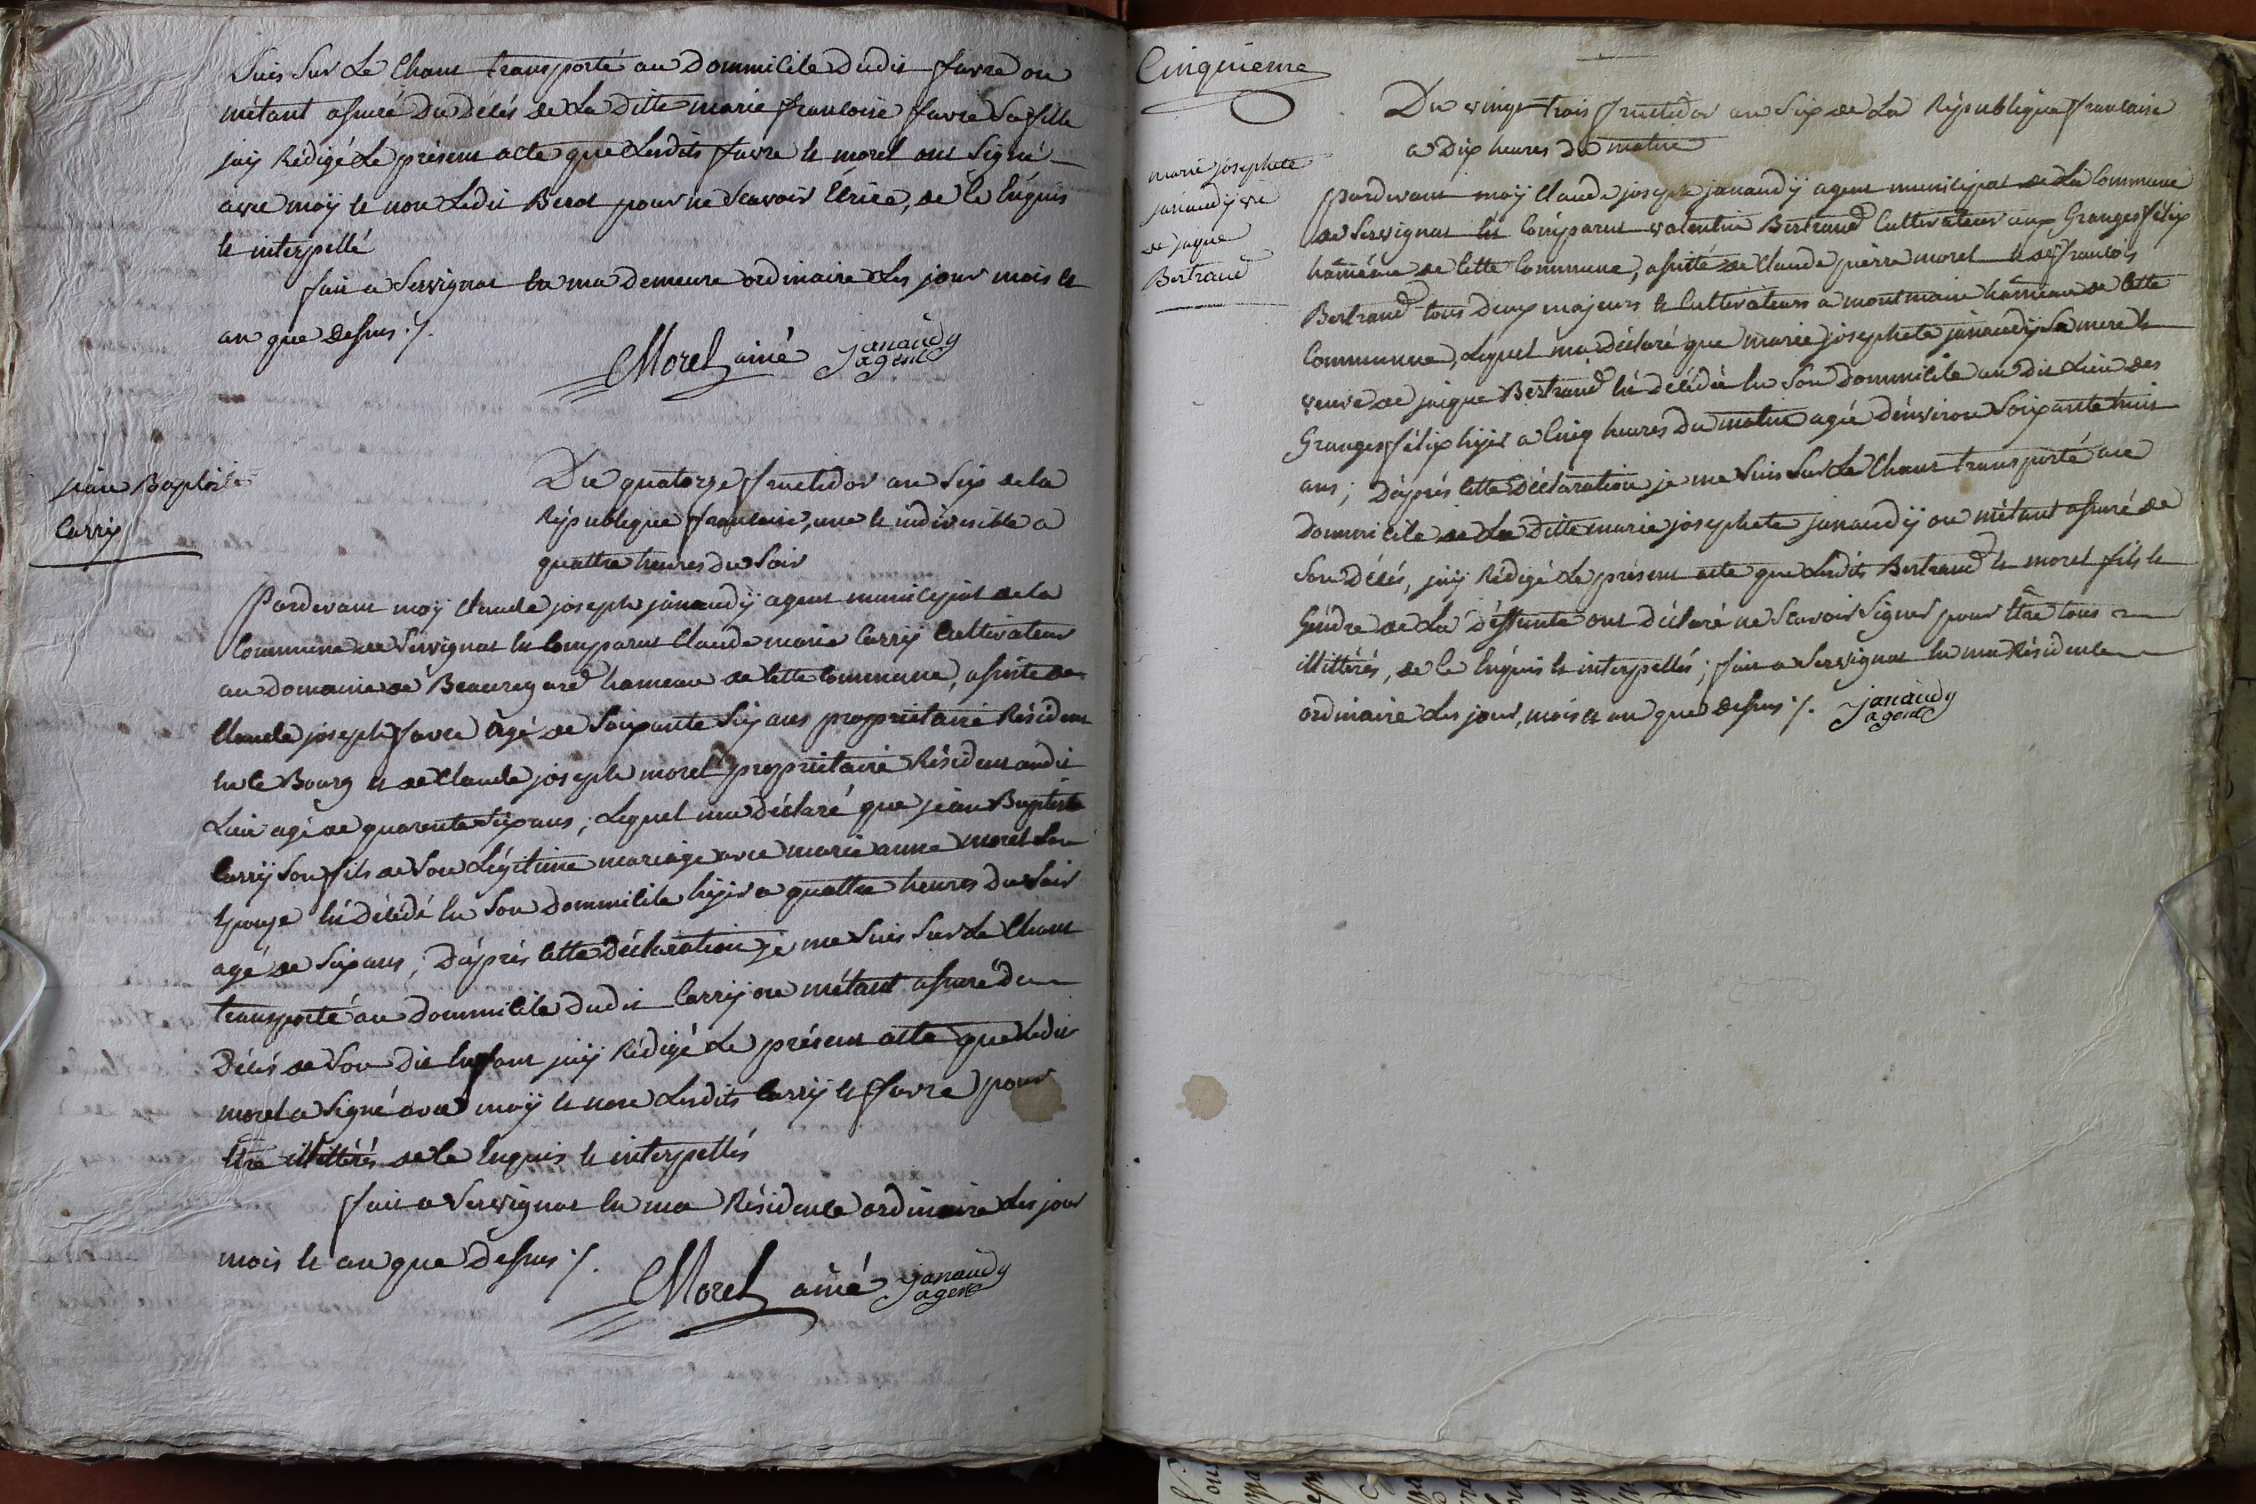 Suis Sur Le Chant transporté au Dommicile Dudit favre ou
métant assuré Du Décés de La Ditte marie francoise favre Sa fille
jaÿ Rédigé Le présent acte que Lesdits favre et morel ont Signé
avec moÿ et non Ledit Berod pour ne Scavoir Ecrire, de ce Enquis
et interpellé
fait a Servignat En ma Demeure ordinaire Les jour mois et
an que Dessus ./.
Morel ainé janaudy
agent
jean Baptiste
Carrÿ
Du quatorze fructidor an Six de la
République francaise, une et indivisible a
quattre heures Du Soir
Pardevant moÿ Claude joseph janaudÿ agent municipal de la
Commune de Servignat Est Comparut Claude marie Carrÿ Cultivateur
au domaine de Beauregard hameau de Cette Commune, assisté de
Claude joseph favre âgé de Soixante Six ans propriétaire Résident
En Ce Bourg et de Claude joseph morel propriétaire Résident audit
Lieu agé de quarente Six ans ; Lequel ma déclaré que jean Baptiste
Carrÿ Son fils de Son Légitime mariage avec marie anne morel Son
Epouse Est Décédé En Son Dommicile hÿer a quattre heures Du Soir
agé de Six ans ; D'aprés Cette Déclaration je me Suis Sur Le Chant
transporté au Dommicile Dudit Carrÿ ou métant assuré Du
Décés de Son Dit Enfant jaÿ Rédigé Le présent acte que Ledit
morel a Signé avec moÿ et non Lesdits Carrÿ et favre pour
Etre illittérés de Ce Enquis et interpellés
fait a Servignat En ma Résidence ordinaire Les jour
mois et an que Dessus ./.
Morel ainé janaudy
agent
Cinquieme
marie josephete
janaudÿ ve
de jaque
Bertrand
Du vingt trois fructidor an Six de La République francaise
a Dix heures Du matin
Pardevant moÿ Claude joseph janaudÿ agent municipal de La Commune
de Servignat Est Comparut valentin Bertrand Cultivateur aux Granges félix
hameau de Cette Commune, assisté de Claude pierre morel et de francois
Bertrand tous Deux majeurs et Cultivateurs a montmain hameau de Cette
Commune, Lequel ma déclaré que marie josephete janaudÿ Sa mere et
veuve de jaique Bertrand Est Décédée En Son Dommicile au dit Lieu des
Granges félix hÿer a Cinq heures Du matin agée D'environ Soixante huit
ans ; D'aprés Cette Déclaration je me Suis Sur Le Chant transporté au
Dommicile de La Ditte marie josephete janaudÿ ou métant assuré de
Son Décés, jaÿ Rédigé Le présent acte que Lesdits Bertrand et morel fils et
Gendre de La Déffunte ont Déclaré ne Scavoir Signer pour Etre tous
illittérés, de Ce Enquis et interpellés ; fait a Servignat En ma Résidence
ordinaire Les jour, mois et an que Dessus ./. janaudy
agent